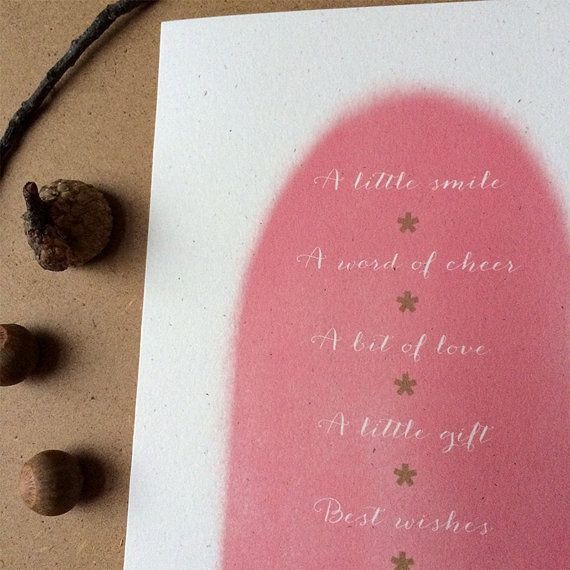 A little smile
*
A word of cheer
*
A bit of love
*
A little gift
*
Best wishes
*